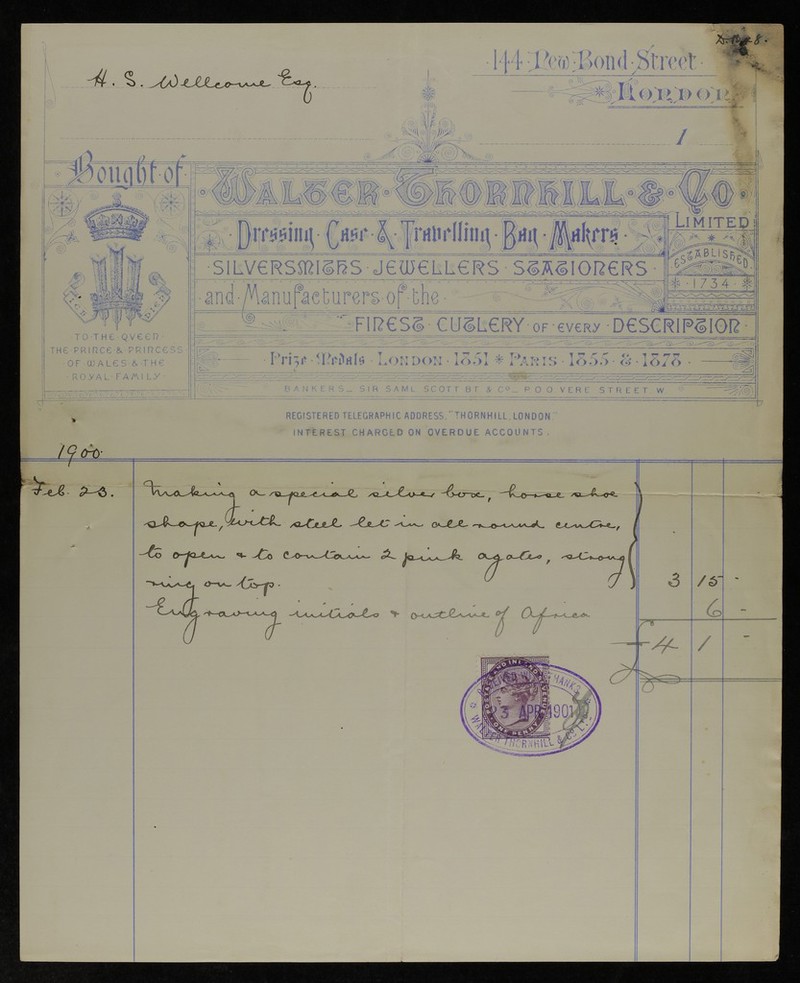 144 New Bond Street
London
H. S. Wellcome Esq.
1
Bought of
Walter Thornhill & Co
Limited
Dressing Case & Travelling Bag Makers
SILVERSMITHS JEWELLERS STATIONERS
ESTABLISHED
1734
and Manufacturers of the
FINEST CUTLERY OF EVERY DESCRIPTION
ICH DIEN
TO THE QUEEN
THE PRINCE & PRINCESS
OF WALES & THE
ROYAL FAMILY
Prize Medals London 1851 * Paris 1855 & 1878
BANKERS _ SIR SAML SCOTT BT & Co _ VERE STREET W
REGISTERED TELEGRAPHIC ADDRESS. "THORNHILL. LONDON"
INTEREST CHARGED ON OVERDUE ACCOUNTS.
1900
Feb. 23. Making a special silver box, horse shoe
shape, with steel let in all round centre,
to open & to contain 2 pink agates, strong
ring on top. 3 15 -
Engraving initials & outline of Africa 6 -
£4 1 -
POSTAGE AND INLAND REVENUE
ONE PENNY
RECEIVED WITH THANKS
23 APR 1901
WALTER THORNHILL & Co LTD.